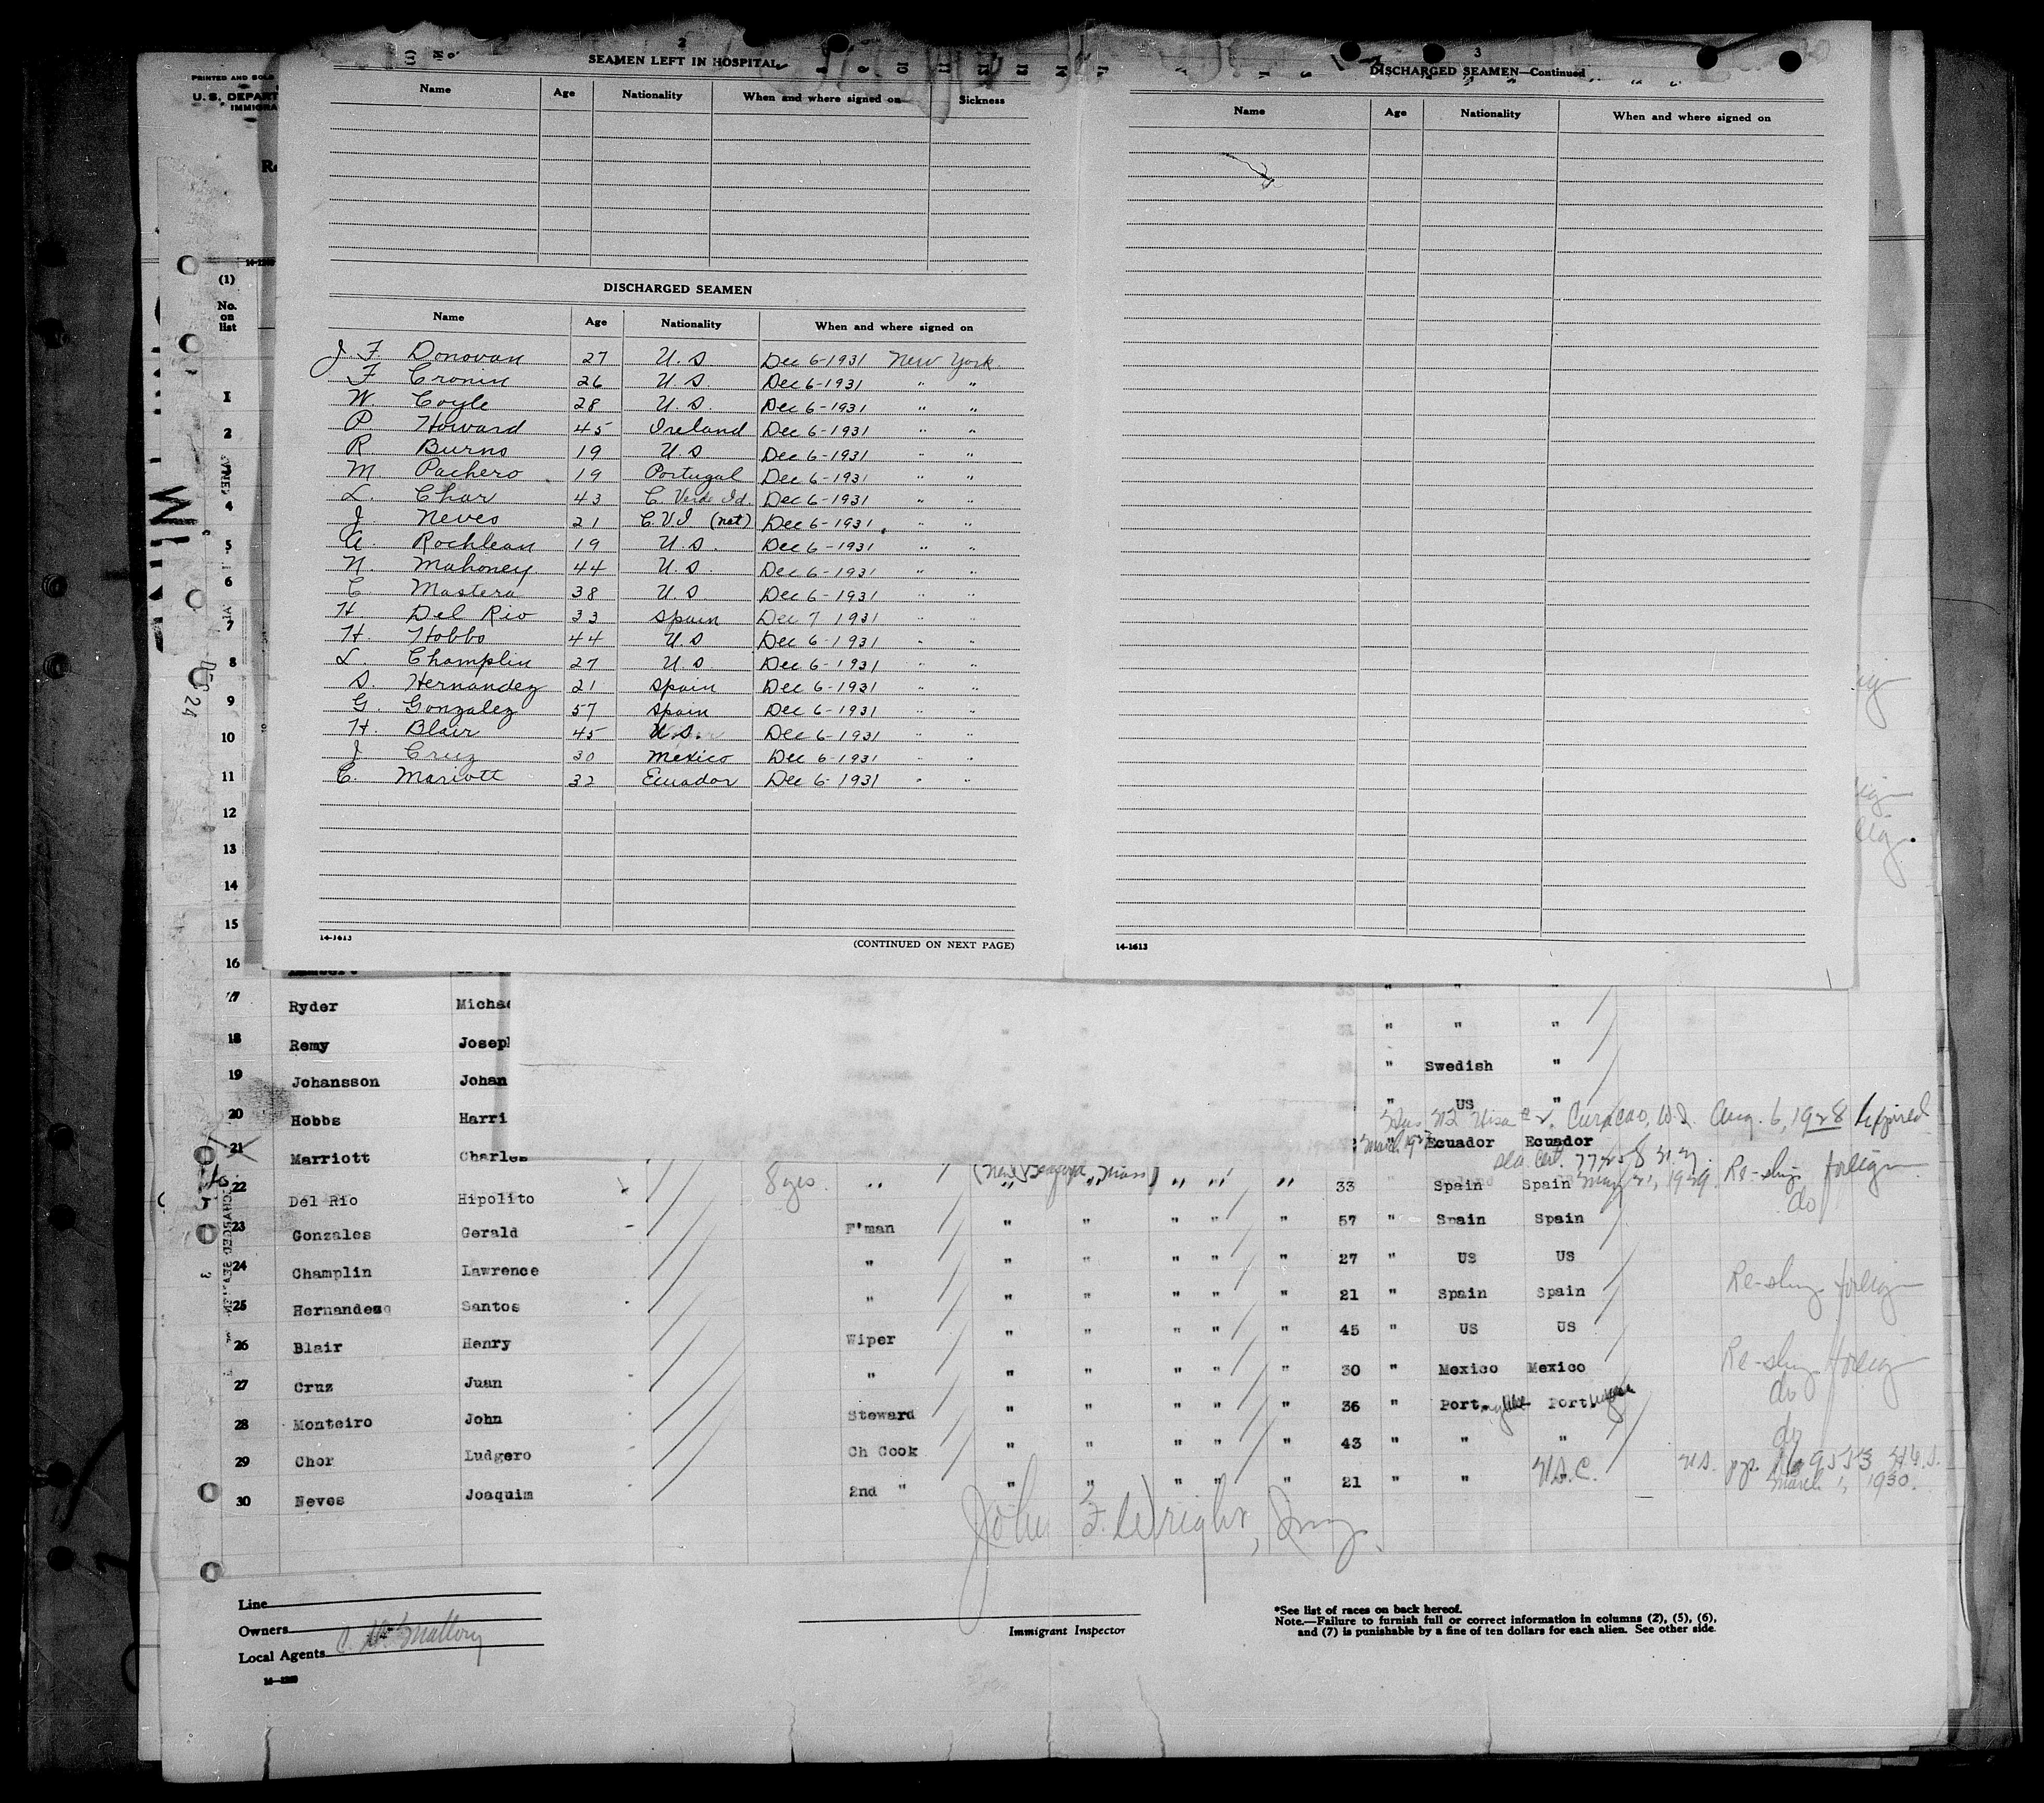 2
SEAMEN LEFT IN HOSPITAL
Name Age Nationality When and where signed on Sickness
DISCHARGED SEAMEN
Name Age Nationality When and where signed on
J. F. Donovan 27 U.S Dec 6-1931 New York
F Cronin 26 U.S. Dec 6-1931 " "
W. Coyle 28 U.S. Dec 6-1931 " "
P. Howard 45 Ireland Dec 6-1931 " "
R Burns 19 U.S Dec 6-1931 " "
M. Pachero 19 Portugal Dec 6-1931 " "
L. Char 43 C. Verde Id. Dec 6-1931 " "
J. Neves 21 C.V.I (nat) Dec 6-1931 " "
A. Rochlean 19 U.S. Dec 6-1931 " "
N. Mahoney 44 U.S. Dec 6-1931 " "
C Mastera 38 U.S. Dec 6-1931 " "
H. Del Rio 33 Spain Dec 7 1931 " "
H. Hobbs 44 U.S Dec 6-1931 " "
L. Champlin 27 U S Dec 6-1931 " "
S. Hernandez 21 Spain Dec 6-1931 " "
G. Gonzalez 57 Spain Dec 6-1931 " "
H. Blair 45 U.S. Dec 6-1931 " "
J Cruz 30 Mexico Dec 6-1931 " "
C. Mariott 32 Ecuador Dec 6-1931 " "
14-1613
(CONTINUED ON NEXT PAGE)
3
DISCHARGED SEAMEN—Continued
Name Age Nationality When and where signed on
14-1613
PRINTED AND SOLD
U.S. DEPART
IMMIGRA
(1)
No.
on
list
1
2
4
5
6
7
8
9
10
11
12
13
14
15
16
DEC 24
17 Ryder Michae
" "
18 Remy Joseph
" " "
19 Johansson Johan
" Swedish "
20 Hobbs Harri
" US "
Visa Curacao, W.I. Aug. 6, 1928 Expired
21 Marriott Charles
Ecuador Ecuador
Re-ship foreign
22 Del Rio Hipolito 8 yrs " " " " " " 33 Spain Spain do
23 Gonzales Gerald F'man " " " " " 57 " Spain Spain
24 Champlin Lawrence " " " " " " 27 " US US
25 Hernandes Santos " " " " " " 21 " Spain Spain Re-ship foreign
26 Blair Henry Wiper " " " " " 45 " US US
27 Cruz Juan " " " " " " 30 " Mexico Mexico Re-ship foreign
28 Monteiro John Steward " " " " " 36 " Port Port do
29 Chor Ludgero Ch Cook " " " " " 43 " " " do
30 Neves Joaquim 2nd " " " " " " 21 " " U.S.C.
March 1, 1930.
John F. Wright, Insp.
Line
Owners
Local Agents C. D. Mallory
Immigrant Inspector
*See list of races on back hereof.
Note.—Failure to furnish full or correct information in columns (2), (5), (6),
and (7) is punishable by a fine of ten dollars for each alien. See other side.